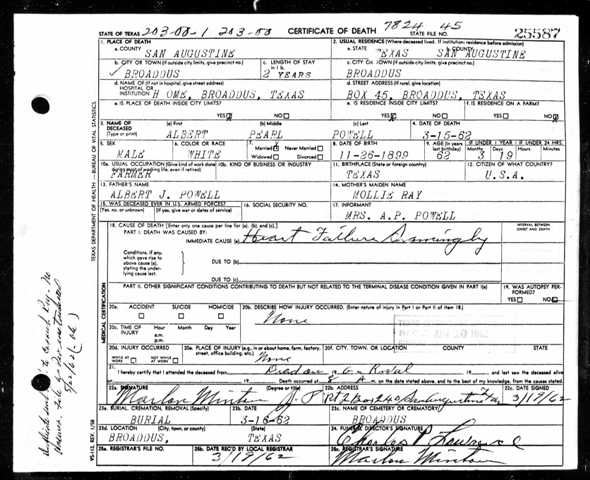 7824 45
STATE OF TEXAS 203-00-1 203-00 CERTIFICATE OF DEATH STATE FILE NO. 25587
1. PLACE OF DEATH 2. USUAL RESIDENCE (Where deceased lived. If institution: residence before admission)
a. COUNTY SAN AUGUSTINE a. STATE TEXAS b. COUNTY SAN AUGUSTINE
b. CITY OR TOWN (If outside city limits, give precinct no.) c. LENGTH OF STAY in 1 b. c. CITY OR TOWN (If outside city limits, give precinct no.)
BROADDUS 2 YEARS BROADDUS
d. NAME OF (If not in hospital, give street address) HOSPITAL OR INSTITUTION d. STREET ADDRESS (If rural, give location)
H OME, BROADDUS, TEXAS BOX 45, BROADDUS, TEXAS
e. IS PLACE OF DEATH INSIDE CITY LIMITS? e. IS RESIDENCE INSIDE CITY LIMITS? f. IS RESIDENCE ON A FARM?
YES NO YES NO YES NO
3. NAME OF DECEASED (Type or print) (a) First (b) Middle (c) Last 4. DATE OF DEATH
ALBERT PEARL POWELL 3-15-62
5. SEX 6. COLOR OR RACE 7. Married Never Married Widowed Divorced 8. DATE OF BIRTH 9. AGE (In years last birthday) IF UNDER 1 YEAR IF UNDER 24 HRS.
MALE WHITE 11-26-1899 62 Months 3 Days 19 Hours Min.
10a. USUAL OCCUPATION (Give kind of work done during most of working life, even if retired) 10b. KIND OF BUSINESS OR INDUSTRY 11. BIRTHPLACE (State or foreign country) 12. CITIZEN OF WHAT COUNTRY?
FARMER TEXAS U.S.A.
13. FATHER'S NAME 14. MOTHER'S MAIDEN NAME
ALBERT J. POWELL MOLLIE RAY
15. WAS DECEASED EVER IN U.S. ARMED FORCES? 16. SOCIAL SECURITY NO. 17. INFORMANT
(Yes, no, or unknown) (If yes, give war or dates of service) MRS. A.P. POWELL
18. CAUSE OF DEATH [Enter only one cause per line for (a), (b), and (c).] INTERVAL BETWEEN ONSET AND DEATH
PART I. DEATH WAS CAUSED BY:
IMMEDIATE CAUSE (a) Heart Failure
Conditions, if any, which gave rise to above cause (a), stating the underlying cause last.
DUE TO (b)
DUE TO (c)
PART II. OTHER SIGNIFICANT CONDITIONS CONTRIBUTING TO DEATH BUT NOT RELATED TO THE TERMINAL DISEASE CONDITION GIVEN IN PART I(a) 19. WAS AUTOPSY PERFORMED?
YES NO
20a. ACCIDENT SUICIDE HOMICIDE 20b. DESCRIBE HOW INJURY OCCURRED. (Enter nature of injury in Part I or Part II of item 18.)
None
20c. TIME OF INJURY Hour Month Day Year
a.m.
p.m.
20d. INJURY OCCURRED 20e. PLACE OF INJURY (e.g., in or about home, farm, factory, street, office building, etc.) 20f. CITY, TOWN, OR LOCATION COUNTY STATE
WHILE AT WORK NOT WHILE AT WORK None
21. I hereby certify that I attended the deceased from to and last saw the deceased alive
on Death occurred at m. on the date stated above, and to the best of my knowledge, from the causes stated.
22a. SIGNATURE (Degree or title) 22b. ADDRESS 22c. DATE SIGNED
Marlon Minton J.P. Rt 2 Box 240 San Augustine 3/19/62
23a. BURIAL, CREMATION, REMOVAL (Specify) 23b. DATE 23c. NAME OF CEMETERY OR CREMATORY
BURIAL 3-16-62 BROADDUS
23d. LOCATION (City, town, or county) (State) 24. FUNERAL DIRECTOR'S SIGNATURE
BROADDUS, TEXAS Charles P Lawrence
25a. REGISTRAR'S FILE NO. 25b. DATE REC'D BY LOCAL REGISTRAR 25c. REGISTRAR'S SIGNATURE
3/19/62 Marlon Minton
TEXAS DEPARTMENT OF HEALTH — BUREAU OF VITAL STATISTICS
MEDICAL CERTIFICATION